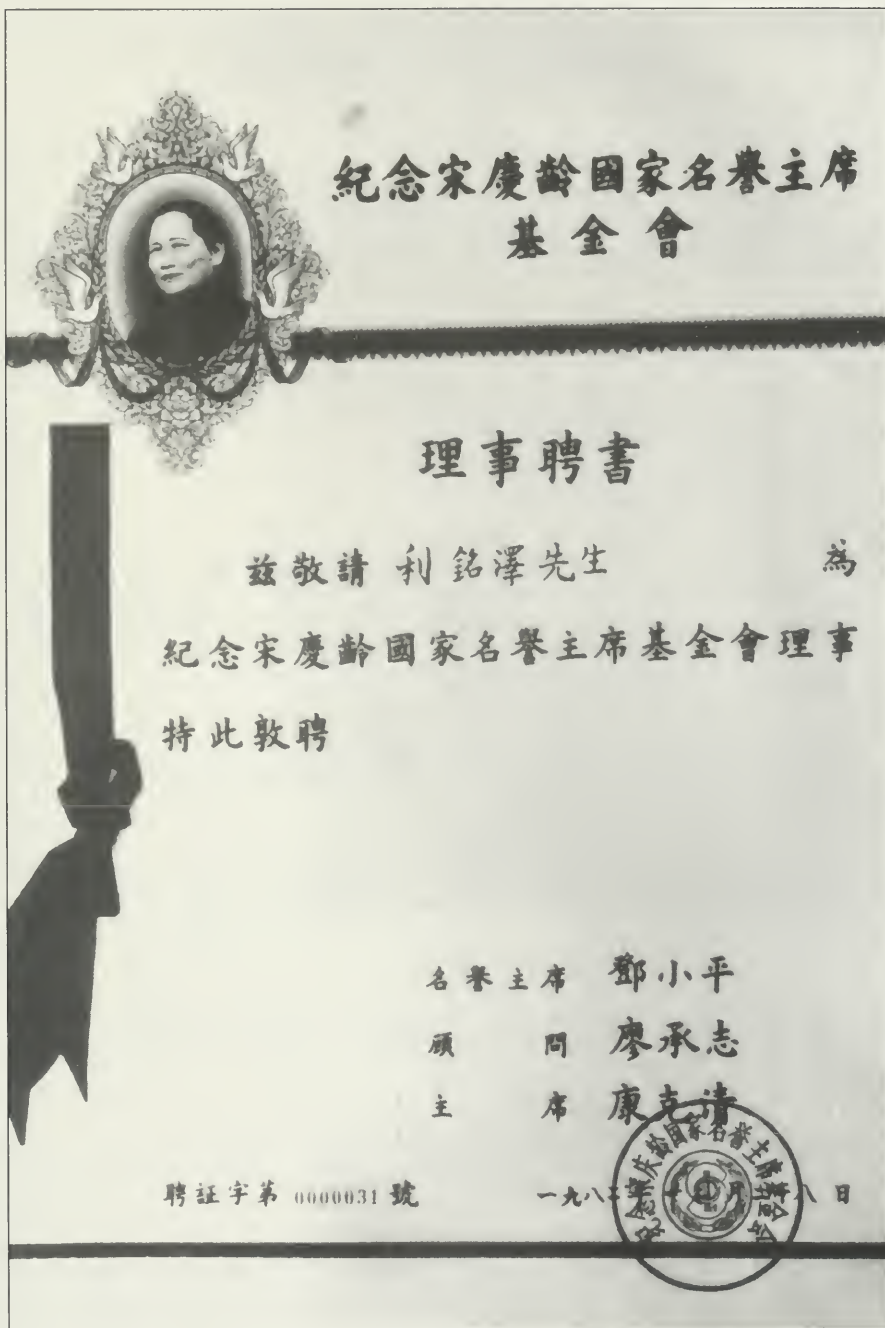 紀念宋慶齡國家名譽主席
基金會
理事聘書
茲敬請 利銘澤先生 為
紀念宋慶齡國家名譽主席基金會理事
特此敦聘
名譽主席 鄧小平
顧問 廖承志
主席 康克清
聘証字第 0000031 號 一九八 年 月 八日
纪念宋庆龄国家名誉主席基金会